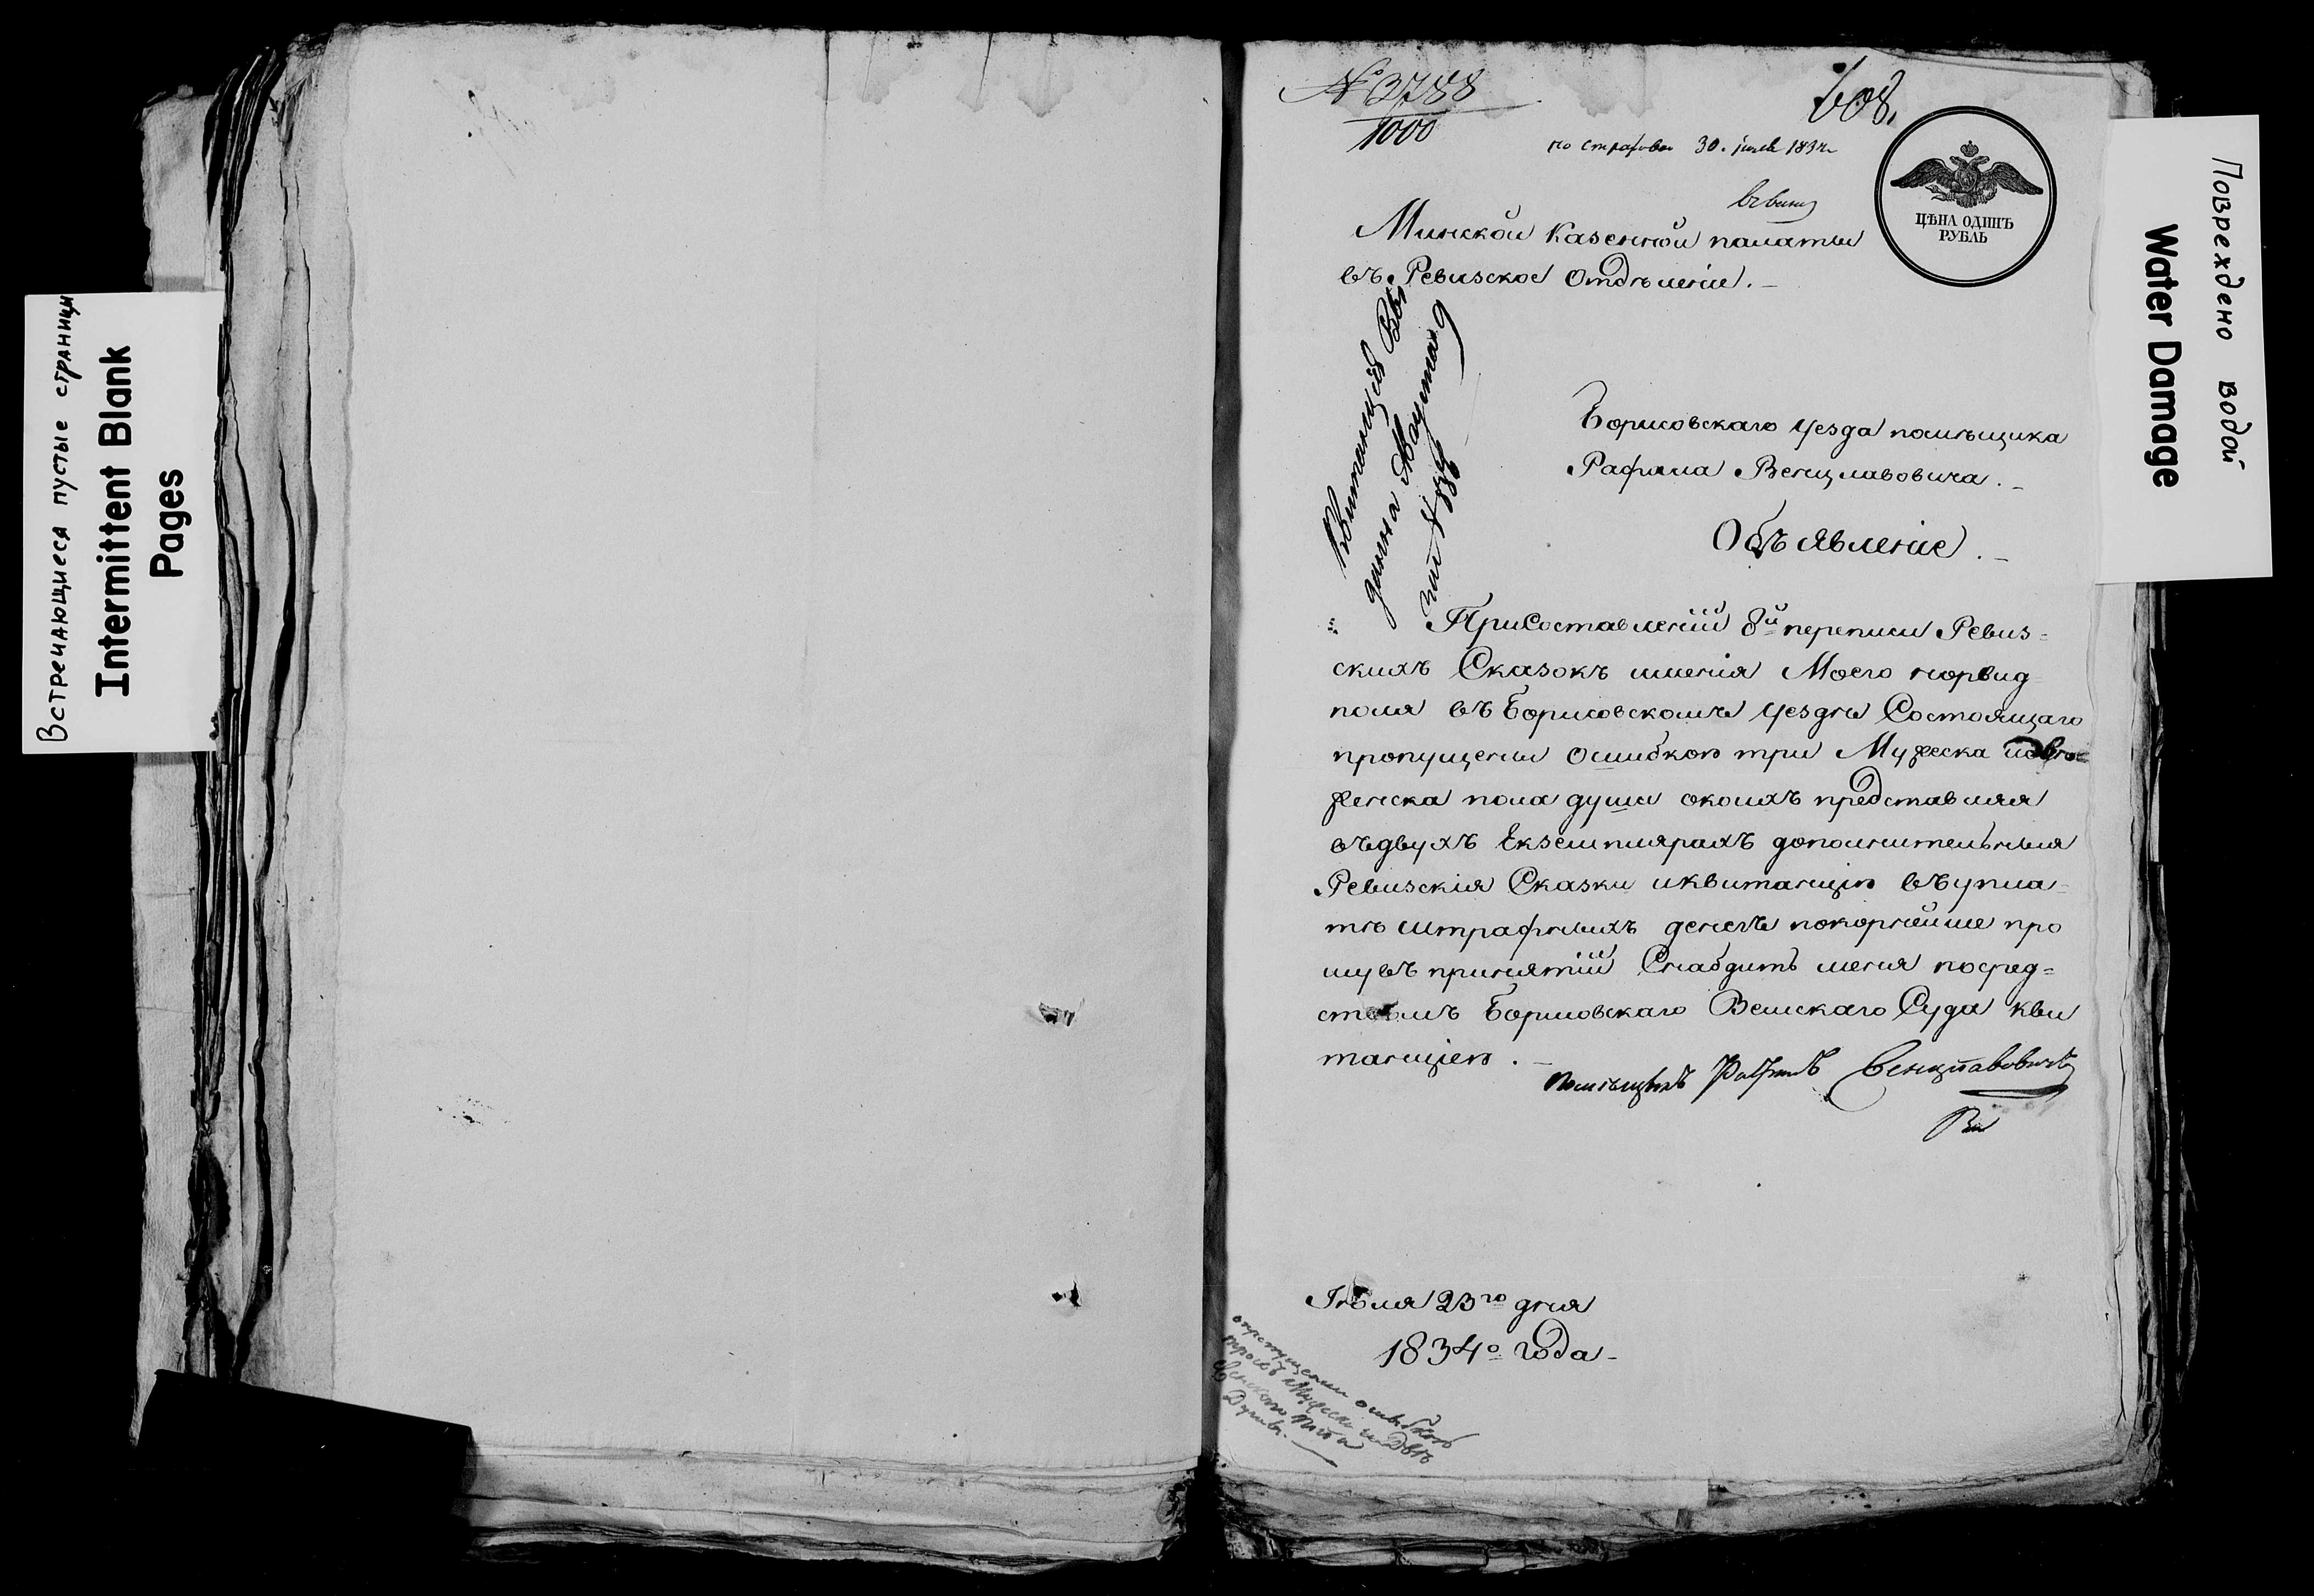 Встречающиеся пустые страницы
Intermittent Blank
Pages
№ 3788
1000
608.
30. июля 1834
ЦѢНА ОДИНЪ
РУБЛЬ
Минской Казенной палаты
въ Ревизское Отдѣленіе. —
Квитанція
дана на Августа 9
1836
Борисовскаго уезда помѣщика
Рафала Венцлавовича. —
Объявленіе. —
При Составленіи 8й переписи Ревиз=
скихъ Сказокъ имения Моего
поля въ Борисовскомъ уездѣ Состоящаго
пропущени ошибкою три Мужеска и двѣ
женска пола души окоихъ представляя
въ двухъ Екземплярахъ дополнительныя
Ревизскія Сказки и квитанцію въ упла=
тѣ штрафныхъ денегъ покорнейше про
шу въ принятіи Снабдить меня посред=
ствомъ Борисовскаго Земскаго Суда кви
танціею. —
Помѣщикъ Рафалъ Венцлавовичъ
Іюля 23го дня
1834о года —
о пропущении ошибкою
троихъ Мужеска и Двѣ
Женскаго пола
Душъ. —
Повреждено водой
Water Damage